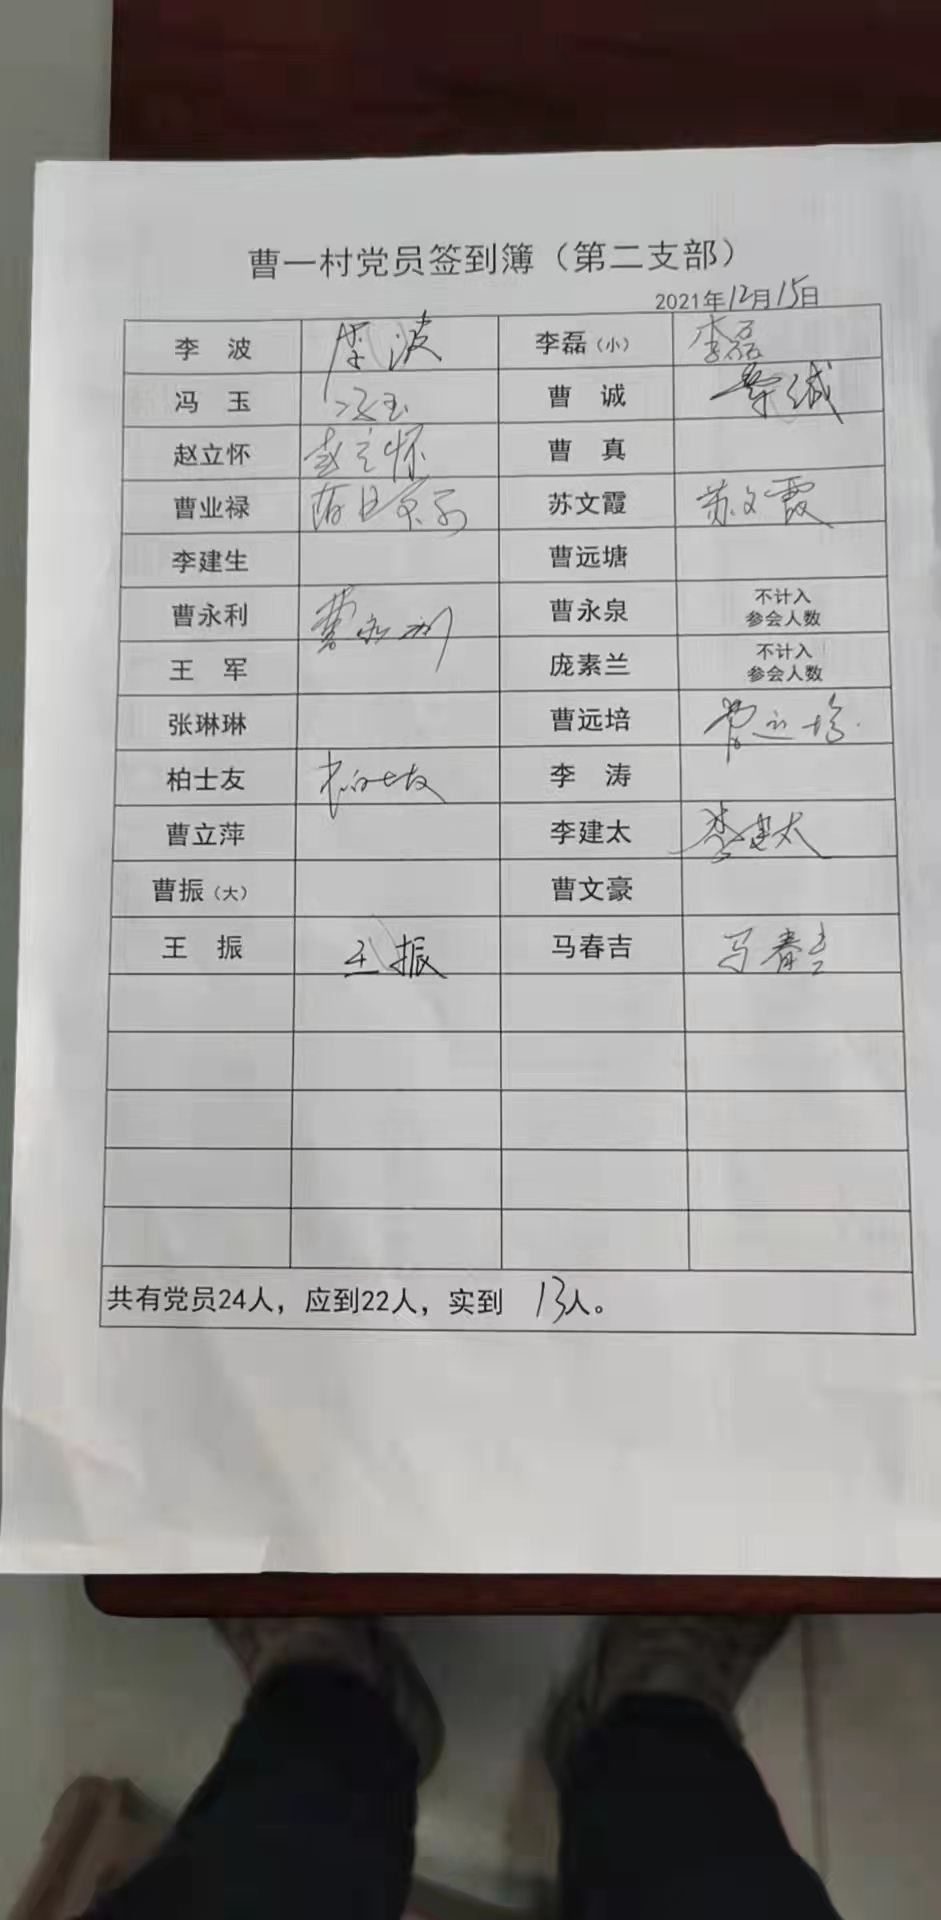 曹一村党员签到簿（第二支部）
2021年12月15日
李 波 李波 李磊（小） 李磊
冯 玉 冯玉 曹 诚 曹诚
赵立怀 赵立怀 曹 真
曹业禄 苏文霞 苏文霞
李建生 曹远塘
曹永利 曹永利 曹永泉 不计入
参会人数
王 军 庞素兰 不计入
参会人数
张琳琳 曹远培 曹远培
柏士友 柏士友 李 涛
曹立萍 李建太 李建太
曹振（大） 曹文豪
王 振 王振 马春吉 马春吉
共有党员24人，应到22人，实到 13人。